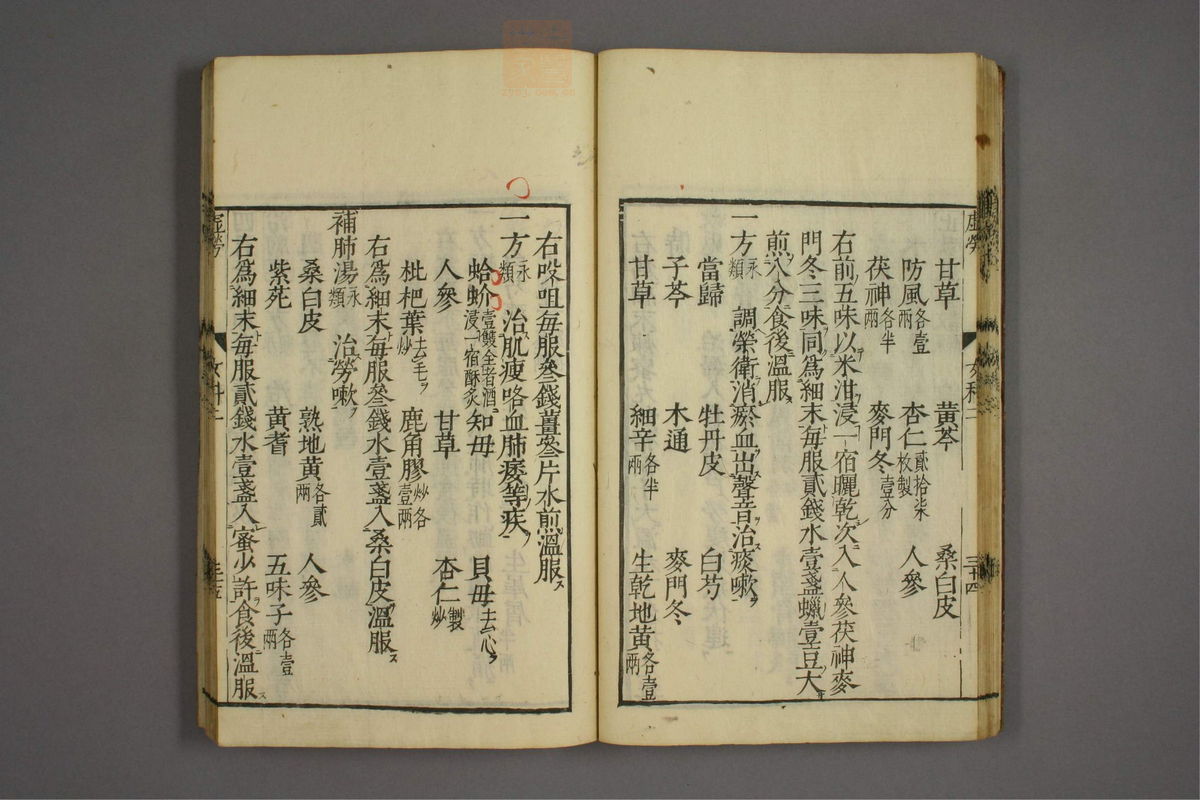 虛勞
女科二
三十四
甘草 黃芩 桑白皮
防風各壹兩 杏仁貳拾柒枚製 人參
茯神各半兩 麥門冬壹分
右前五味以米泔浸一宿曬乾次入人參茯神麥
門冬三味同爲細末每服貳錢水壹盞蠟壹豆大
煎八分食後溫服
一方永類 調榮衛消瘀血出聲音治痰嗽
當歸 牡丹皮 白芍
子芩 木通 麥門冬
甘草 細辛各半兩 生乾地黃各壹兩
右㕮咀每服叄錢薑叄片水煎溫服
一方永類 治肌瘦咯血肺痿等疾
蛤蚧壹雙全者酒浸一宿酥炙 知母 貝母去心
人參 甘草 杏仁製炒
枇杷葉去毛炒 鹿角膠炒各壹兩
右爲細末每服叄錢水壹盞入桑白皮溫服
補肺湯永類 治勞嗽
桑白皮 熟地黃各貳兩 人參
紫菀 黃耆 五味子各壹兩
右爲細末每服貳錢水壹盞入蜜少許食後溫服
虛勞
女科二